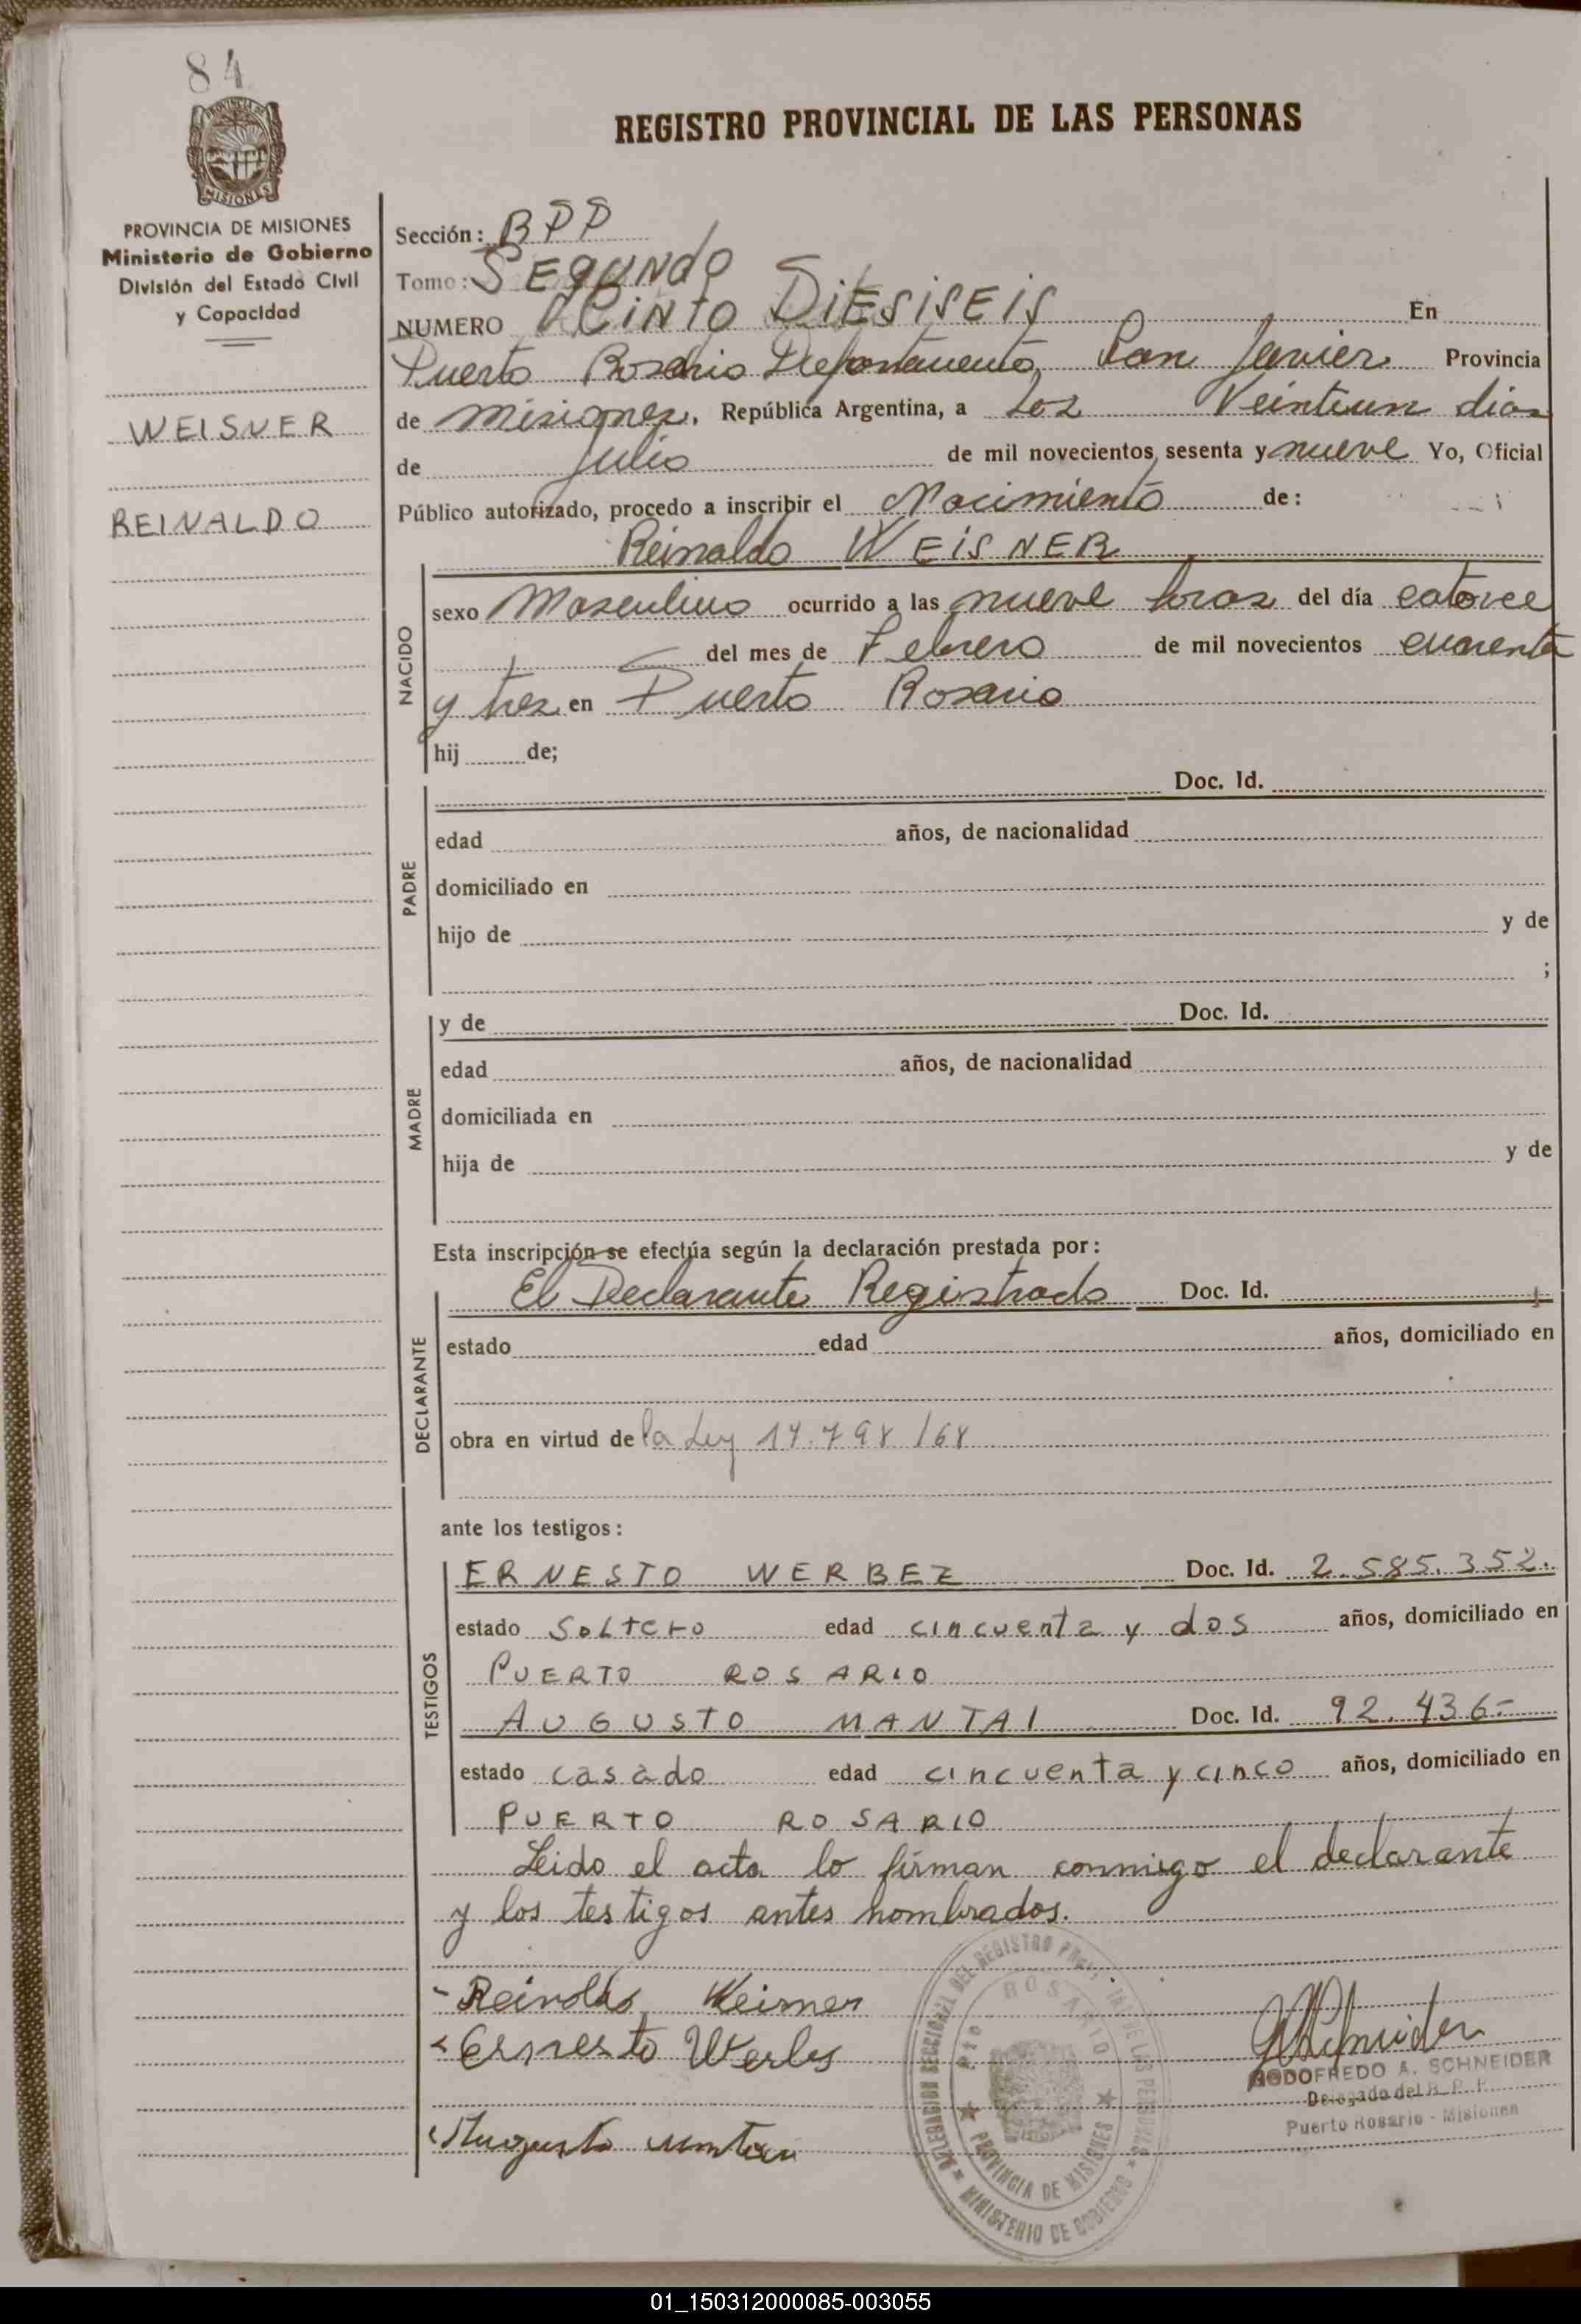 84
REGISTRO PROVINCIAL DE LAS PERSONAS
PROVINCIA DE MISIONES
Ministerio de Gobierno
División del Estado Civil
y Capacidad
WEISNER
REINALDO
Sección: BPP
Tomo: SEgUNdo
NUMERO CiNTO DiESiSEIS En
Puerto Rosario Departamento San Javier Provincia
de Misiones. República Argentina, a Los Veintiun dias
de Julio de mil novecientos sesenta y nueve Yo, Oficial
Público autorizado, procedo a inscribir el Nacimiento de:
Reinaldo WEiSNER
NACIDO
sexo Masculino ocurrido a las nueve horas del día catorce
del mes de Febrero de mil novecientos cuarenta
y tres en Puerto Rosario
hij de;
PADRE
Doc. Id.
edad años, de nacionalidad
domiciliado en
hijo de y de
;
MADRE
y de Doc. Id.
edad años, de nacionalidad
domiciliada en
hija de y de
Esta inscripción se efectúa según la declaración prestada por:
DECLARANTE
El Declarante Registrado Doc. Id.
estado edad años, domiciliado en
obra en virtud de la Ley 17.798/68
ante los testigos:
TESTIGOS
ERNESTO WERBEZ Doc. Id. 2.585.352.
estado SoLtero edad cincuenta y dos años, domiciliado en
PUERTO ROSARIO
AUGUSTO MANTAI Doc. Id. 92.436-
estado casado edad cincuenta y cinco años, domiciliado en
PUERTO ROSARIO
Leido el acta lo firman conmigo el declarante
y los testigos antes nombrados.
- Reinoldo Weisner
Ernesto Werbes
Augusto
GSchneider
GODOFREDO A. SCHNEIDER
Delegado del R. P. P.
Puerto Rosario - Misiones
DELEGACION SECCIONAL DEL REGISTRO PROVINCIAL DE LAS PERSONAS
MINISTERIO DE GOBIERNO
Pto. ROSARIO
PROVINCIA DE MISIONES
01_150312000085-003055